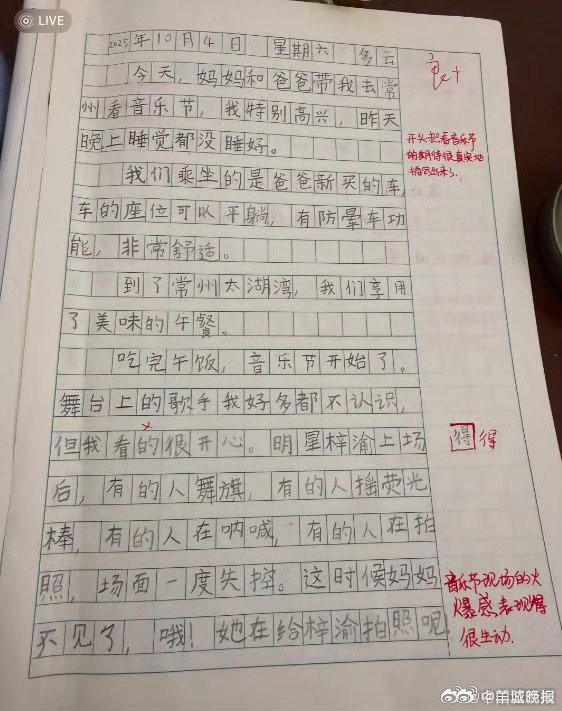 LIVE
2025年10月4日 星期六 多云
良+
今天，妈妈和爸爸带我去常
州看音乐节，我特别高兴，昨天
晚上睡觉都没睡好。
开头把看音乐节
的期待很真实地
描写出来了.
我们乘坐的是爸爸新买的车，
车的座位可以平躺，有防晕车功
能，非常舒适。
到了常州太湖湾，我们享用
了美味的午餐。
吃完午饭，音乐节开始了。
舞台上的歌手我好多都不认识，
但我看的很开心。明星梓渝上场
得 得
后，有的人舞旗，有的人摇荧光
棒，有的人在呐喊，有的人在拍
照，场面一度失控。这时候妈妈
不见了，哦！她在给梓渝拍照呢
音乐节现场的火
爆感表现得
很生动.
@羊城晚报